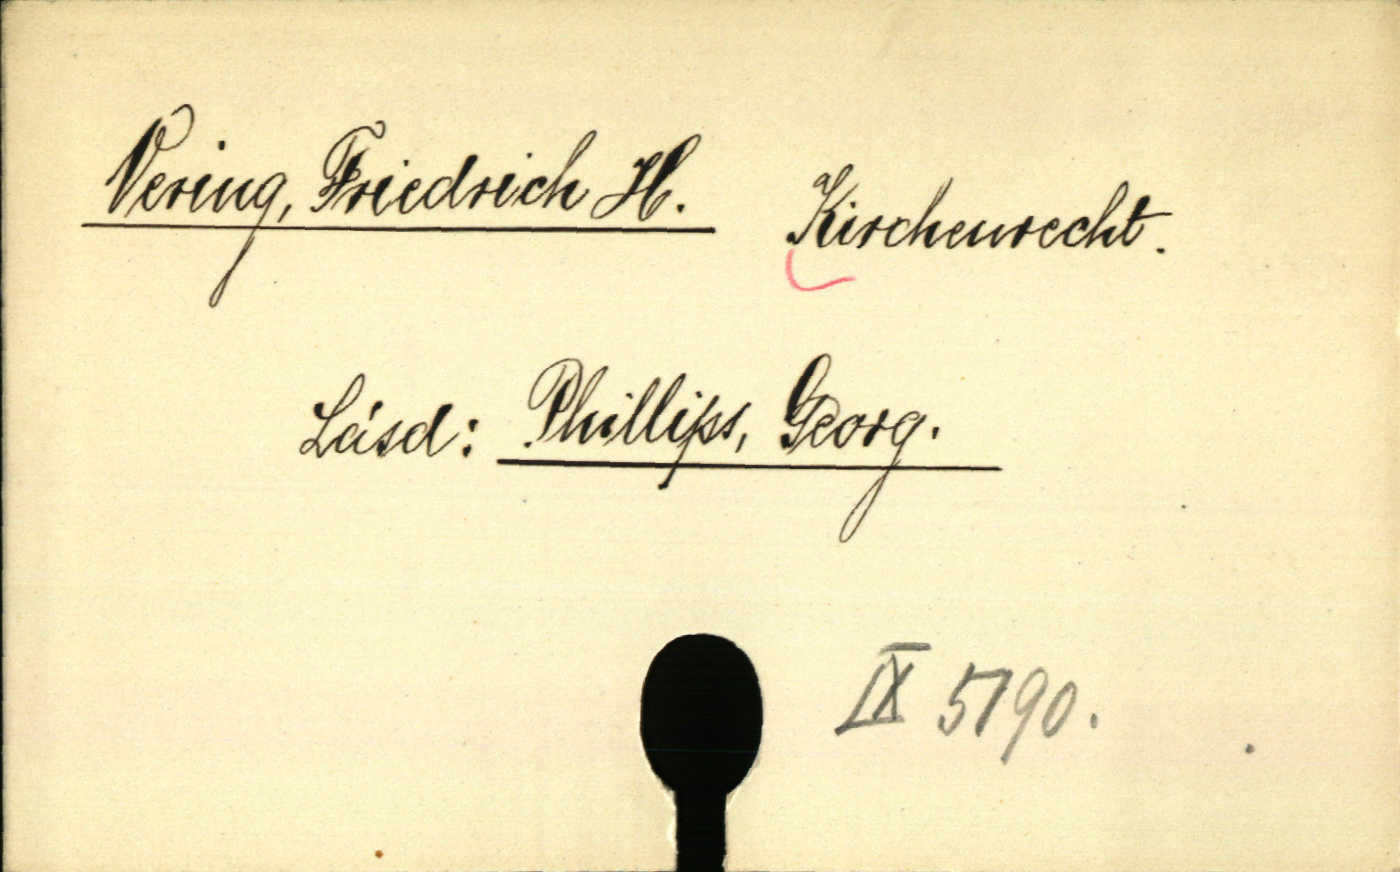 Vering, Friedrich H. Kirchenrecht.
Lásd: Phillips, Georg.
IX 5190.